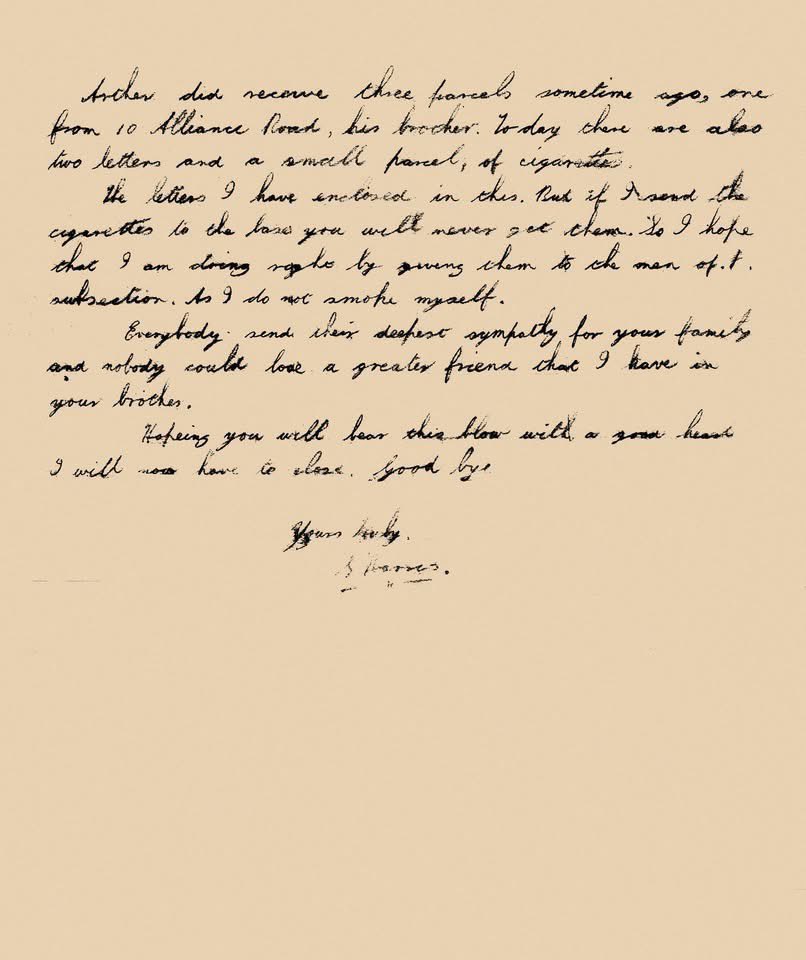 Arther did receive three parcels sometime ago, one
from 10 Alliance Road, his brother. To day there are also
two letters and a small parcel, of cigarette.
The letters I have enclosed in this. But if I send the
cigarettes to the base you will never get them. So I hope
that I am doing right by giving them to the men of
subsection. As I do not smoke myself.
Everybody send their deepest sympathy for your family
and nobody could lose a greater friend that I have in
your brother.
Hopeing you will bear this blow with a good heart
I will now have to close. Good bye
Yours truly.